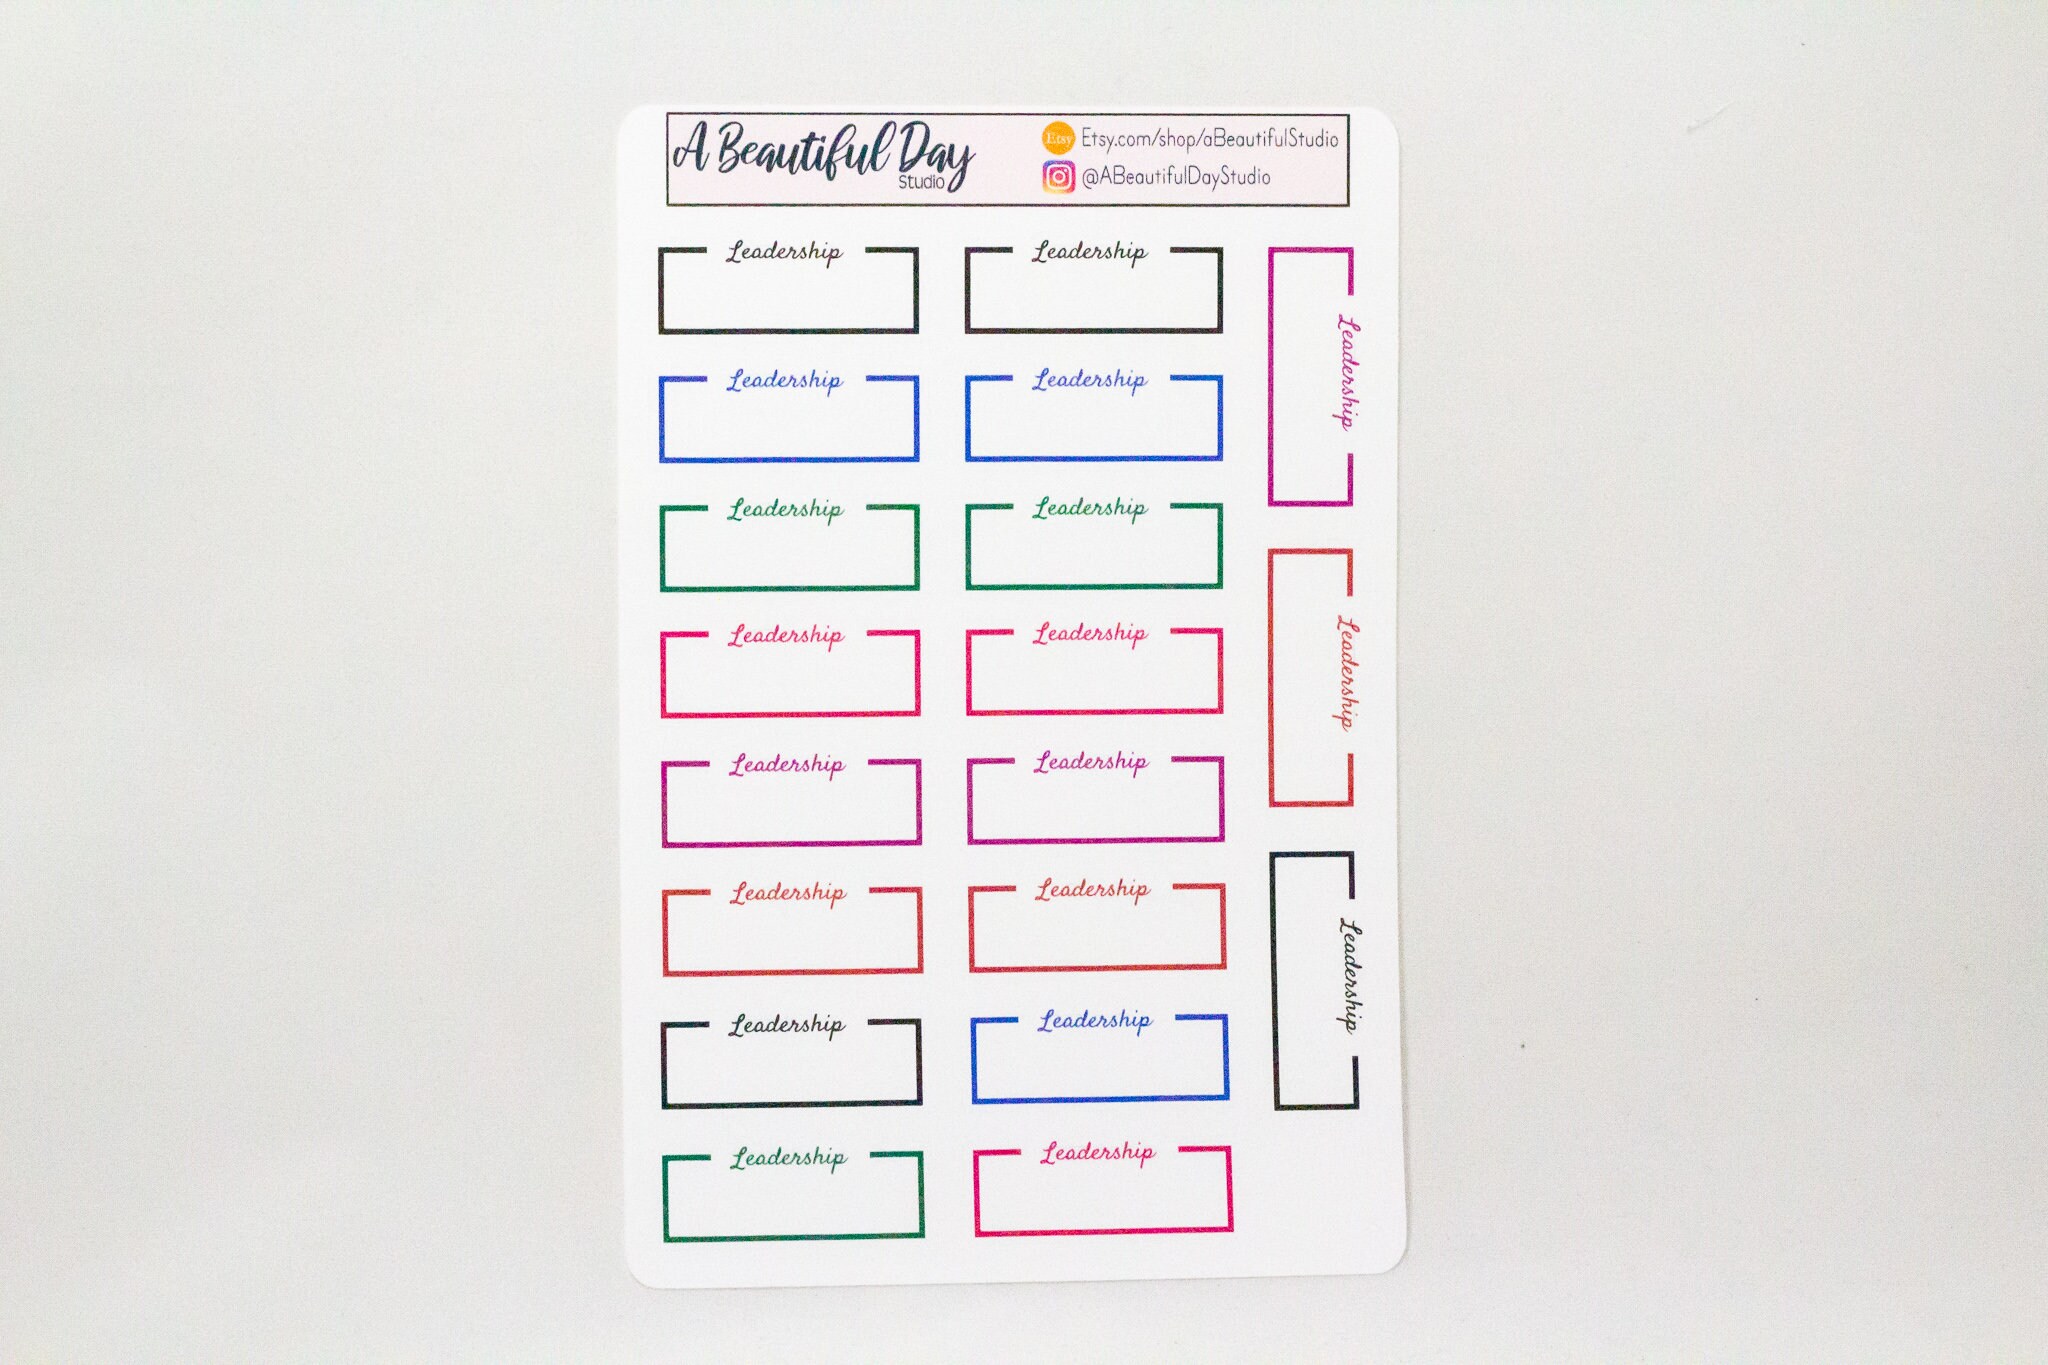 A Beautiful Day
Studio
Etsy Etsy.com/shop/aBeautifulStudio
@ABeautifulDayStudio
Leadership
Leadership
Leadership
Leadership
Leadership
Leadership
Leadership
Leadership
Leadership
Leadership
Leadership
Leadership
Leadership
Leadership
Leadership
Leadership
Leadership
Leadership
Leadership